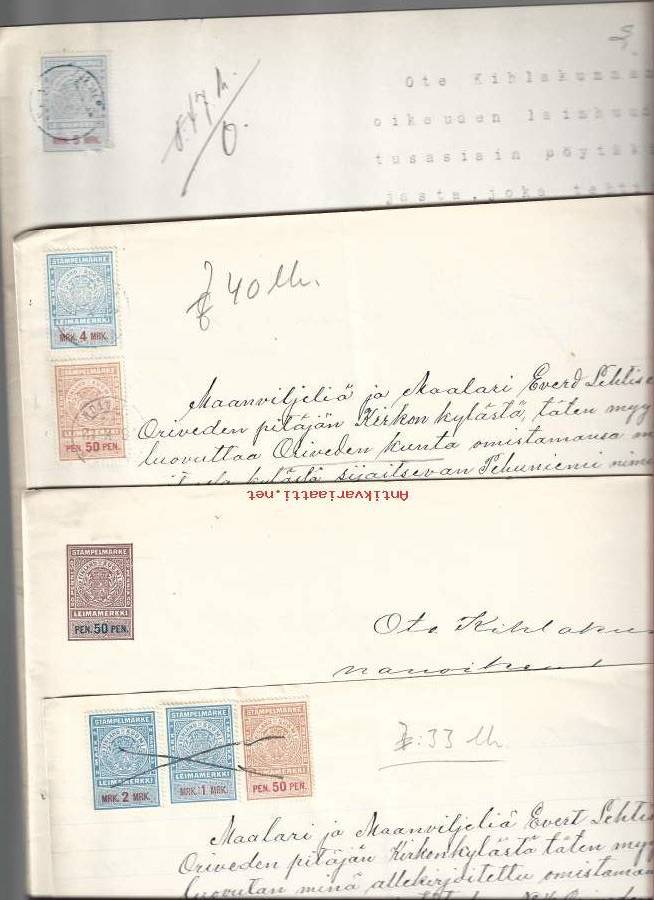 MRK. 5 MRK.
8:47 h.
Ote Kihlakunnan
oikeuden lainhuu
tusasiain pöytäk
jasta, joka teht
STÄMPELMÄRKE
LEIMAMERKKI
MRK. 4 MRK.
40 h.
PEN. 50 PEN.
Maanviljeliä ja Maalari Everd Lehtise
Oriveden pitäjän Kirkon kylästä, täten myy
luovuttaa Oriveden kunta omistamansa
kylästä sijaitsevan Pehuniemi nime
Antikvariaatti.net
STÄMPELMÄRKE
LEIMAMERKKI
PEN. 50 PEN.
Ote Kihlakun
nanoikeud
STÄMPELMÄRKE STÄMPELMÄRKE STÄMPELMÄRKE
LEIMAMERKKI LEIMAMERKKI LEIMAMERKKI
MRK. 2 MRK. MRK. 1 MRK. PEN. 50 PEN.
:33 h.
Maalari ja Maanviljeliä Evert Lehtis
Oriveden pitäjän Kirkonkylästä täten myy
luovutan minä allekirjoitettu omistama